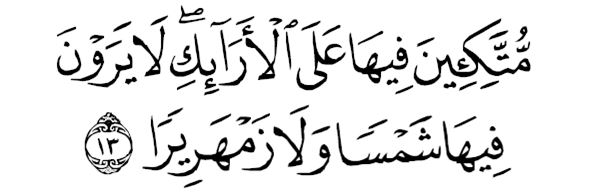 مُّتَّكِـِٔينَ فِيهَا عَلَى ٱلْأَرَآئِكِ ۖ لَا يَرَوْنَ
فِيهَا شَمْسًا وَلَا زَمْهَرِيرًا ١٣